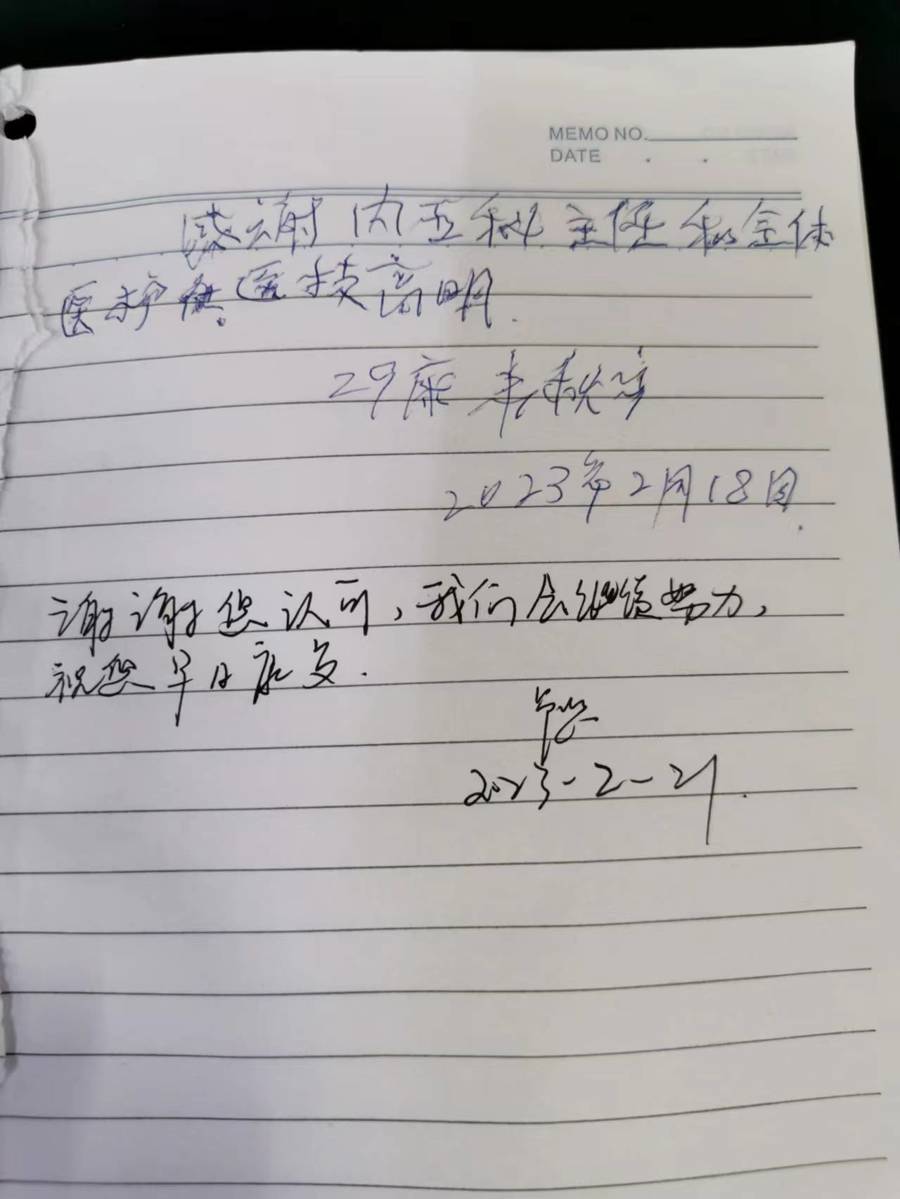 MEMO NO.
DATE . .
感谢内五科主任和全体
医护 医技高明.
29床
2023年2月18日.
谢谢您认可,我们会继续努力,
祝您早日康复.
2023-2-21.